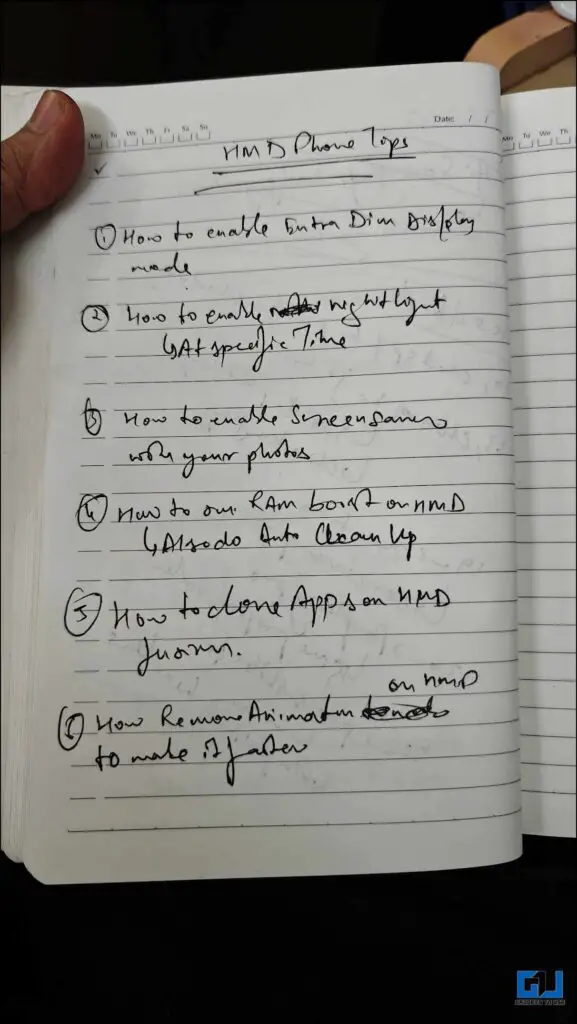 Mo Tu We Th Fr Sa Su
Date: / /
Mo Tu We Th
HMD Phone Tips
① How to enable Extra Dim Display
mode
② How to enable night light
↳ At specific Time
③ How to enable Screensaver
with your photos
④ How to our RAM boost on HMD
↳ Also do Auto Clean Up
⑤ How to clone Apps on HMD
fusion.
on HMD
⑥ How Remove Animation
to make it faster
GU
GADGETS TO USE